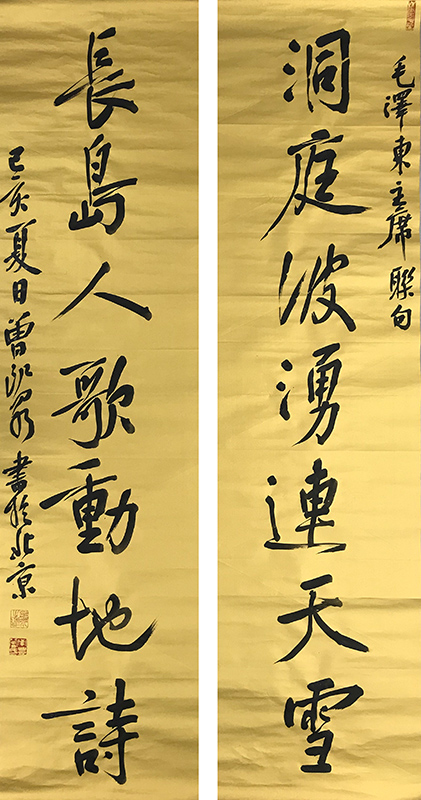 毛澤東主席聯句
洞庭波湧連天雪
長島人歌動地詩
己亥夏日曾
書於北京